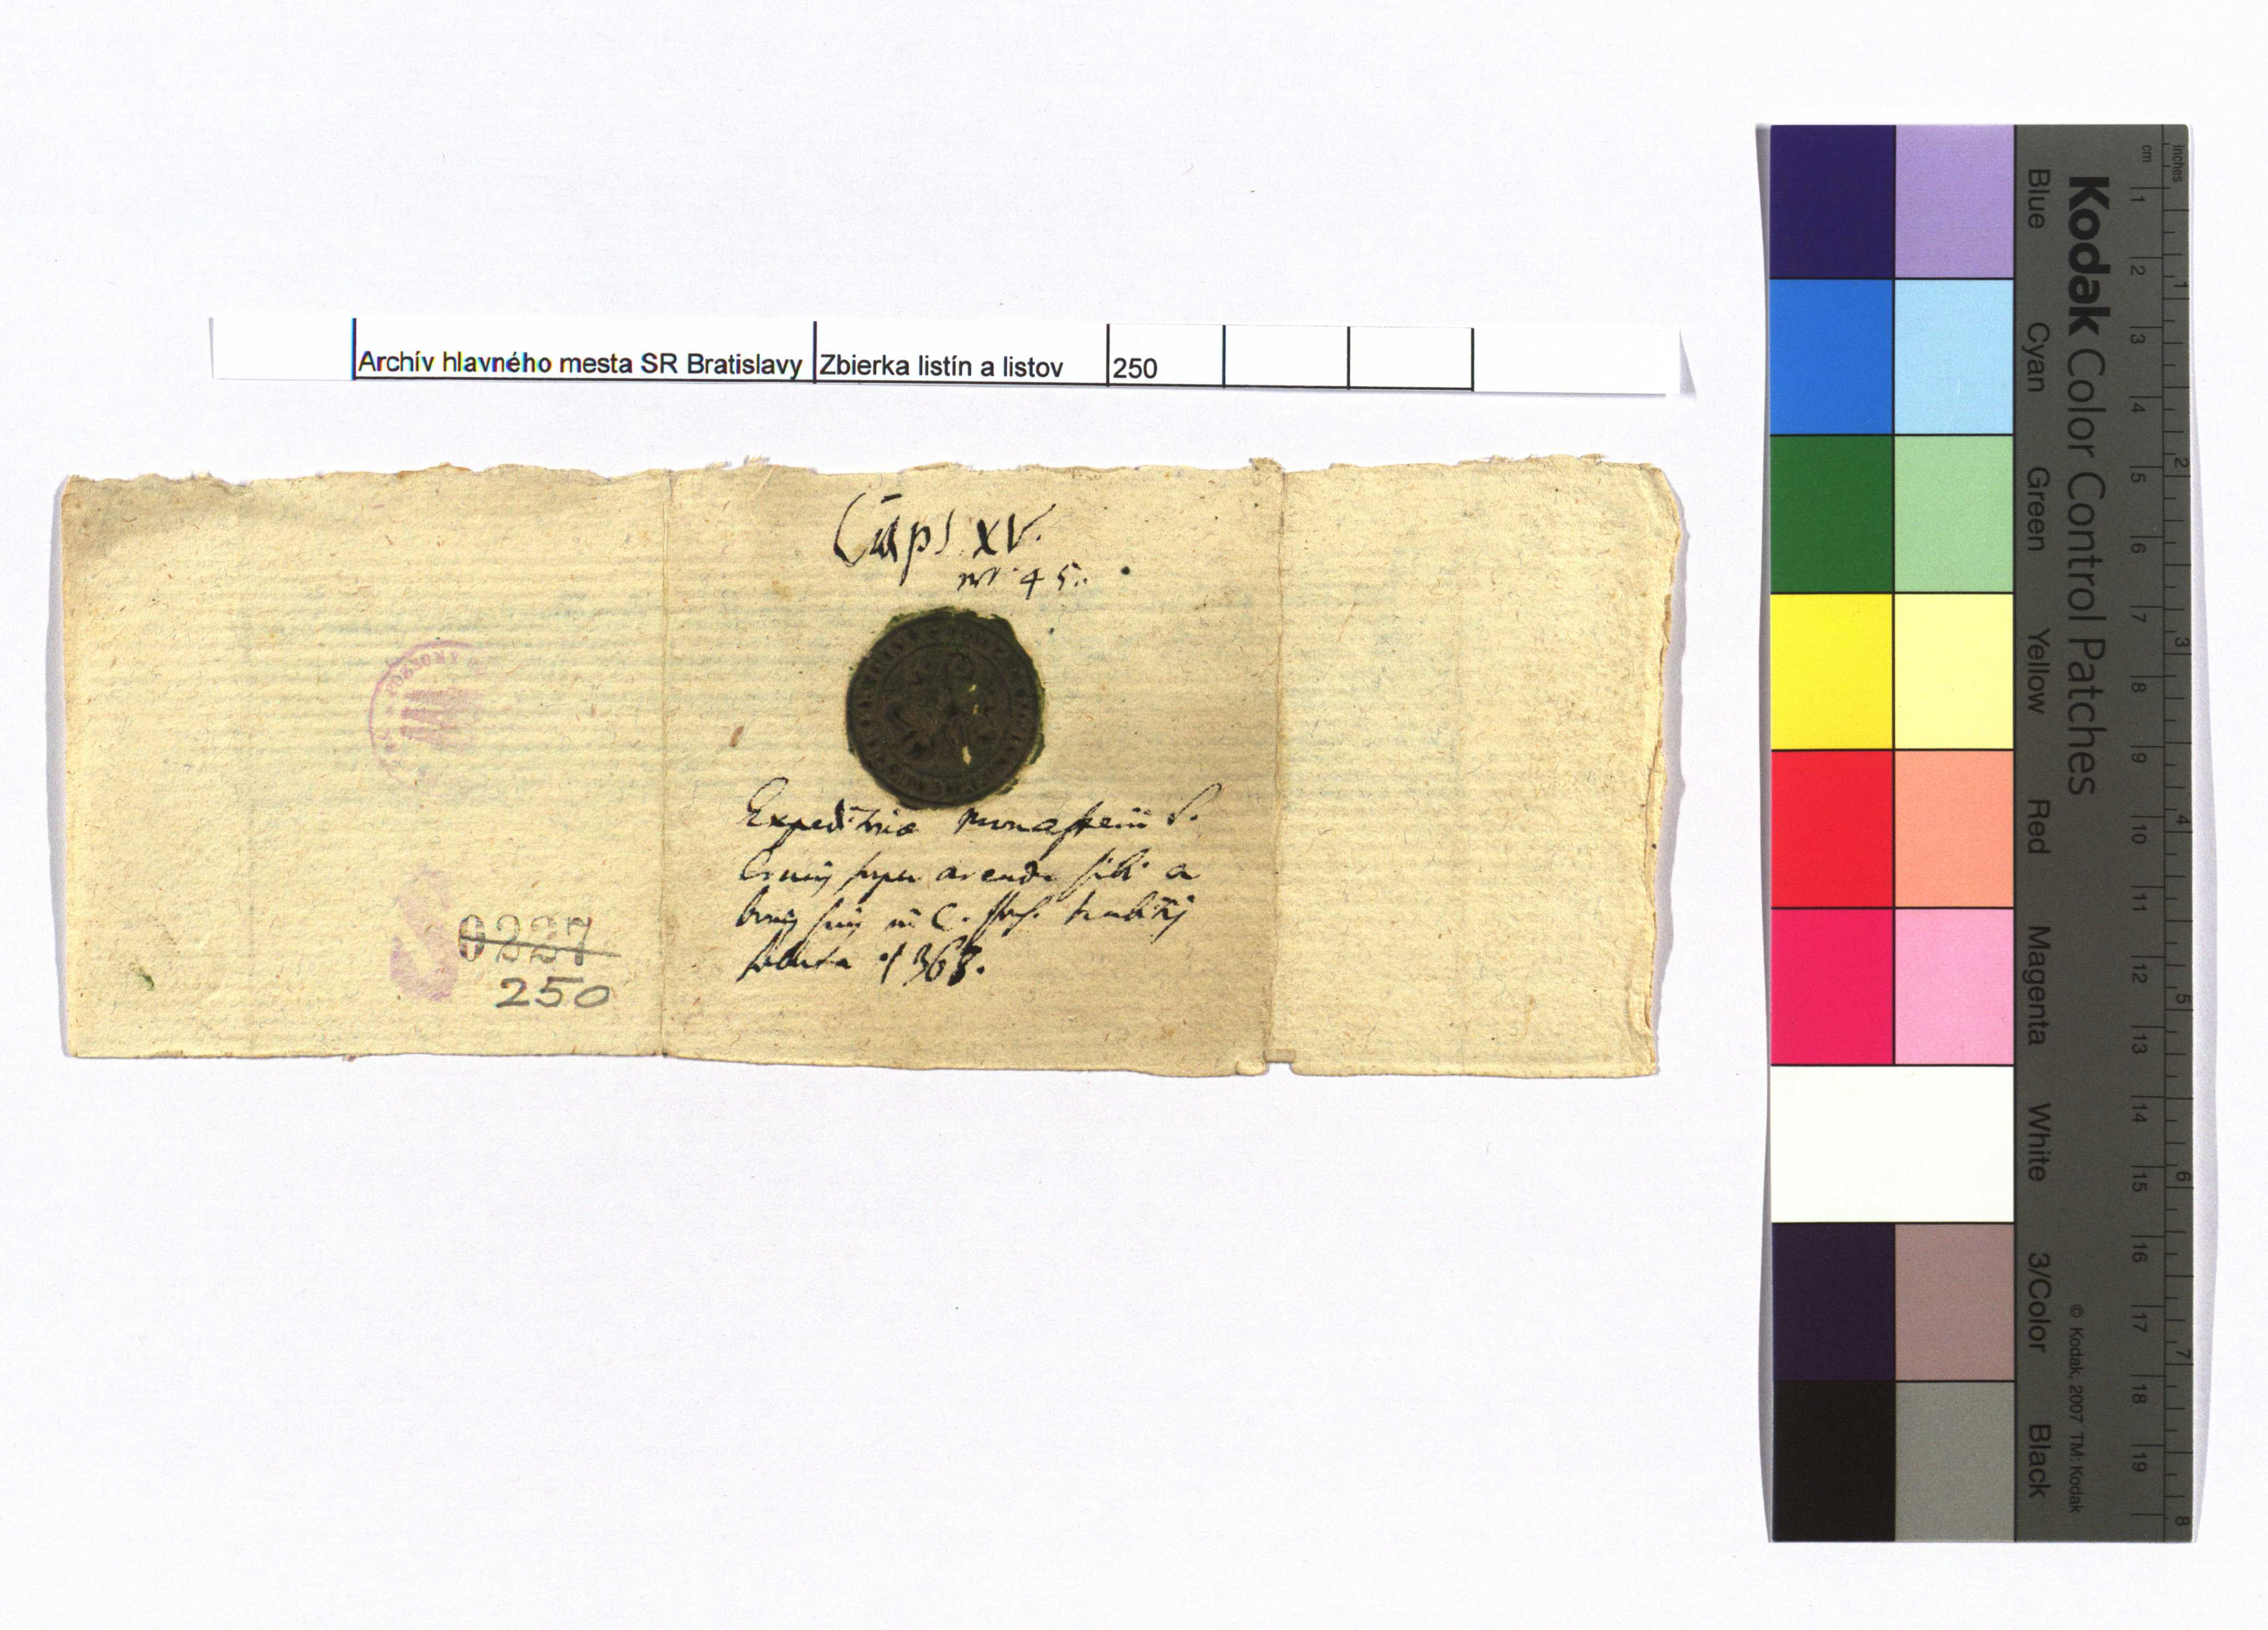 Archív hlavného mesta SR Bratislavy Zbierka listín a listov 250
Caps. XV.
nr. 45.
Expeditoriae Monasterii S.
Crucis super arenda sibi a
bonis suis in C. Pos. habitis
soluta 1368.
POZSONY
0227
250
Kodak Color Control Patches
Blue Cyan Green Yellow Red Magenta White 3/Color Black
© Kodak, 2007 TM: Kodak
cm 1 2 3 4 5 6 7 8 9 10 11 12 13 14 15 16 17 18 19
inches 1 2 3 4 5 6 7 8